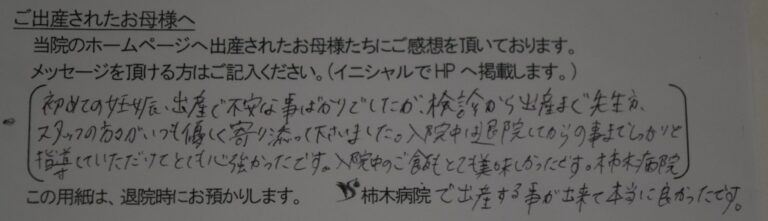 ご出産されたお母様へ
当院のホームページへ出産されたお母様たちにご感想を頂いております。
メッセージを頂ける方はご記入ください。(イニシャルでHPへ掲載します。)
初めての妊娠、出産で不安な事ばかりでしたが、検診から出産まで先生方、
スタッフの方々がいつも優しく寄り添って下さいました。入院中は退院してからの事までしっかりと
指導していただけてとても心強かったです。入院中のご飯もとても美味しかったです。柿木病院
この用紙は、退院時にお預かりします。 柿木病院 で出産する事が出来て本当に良かったです。